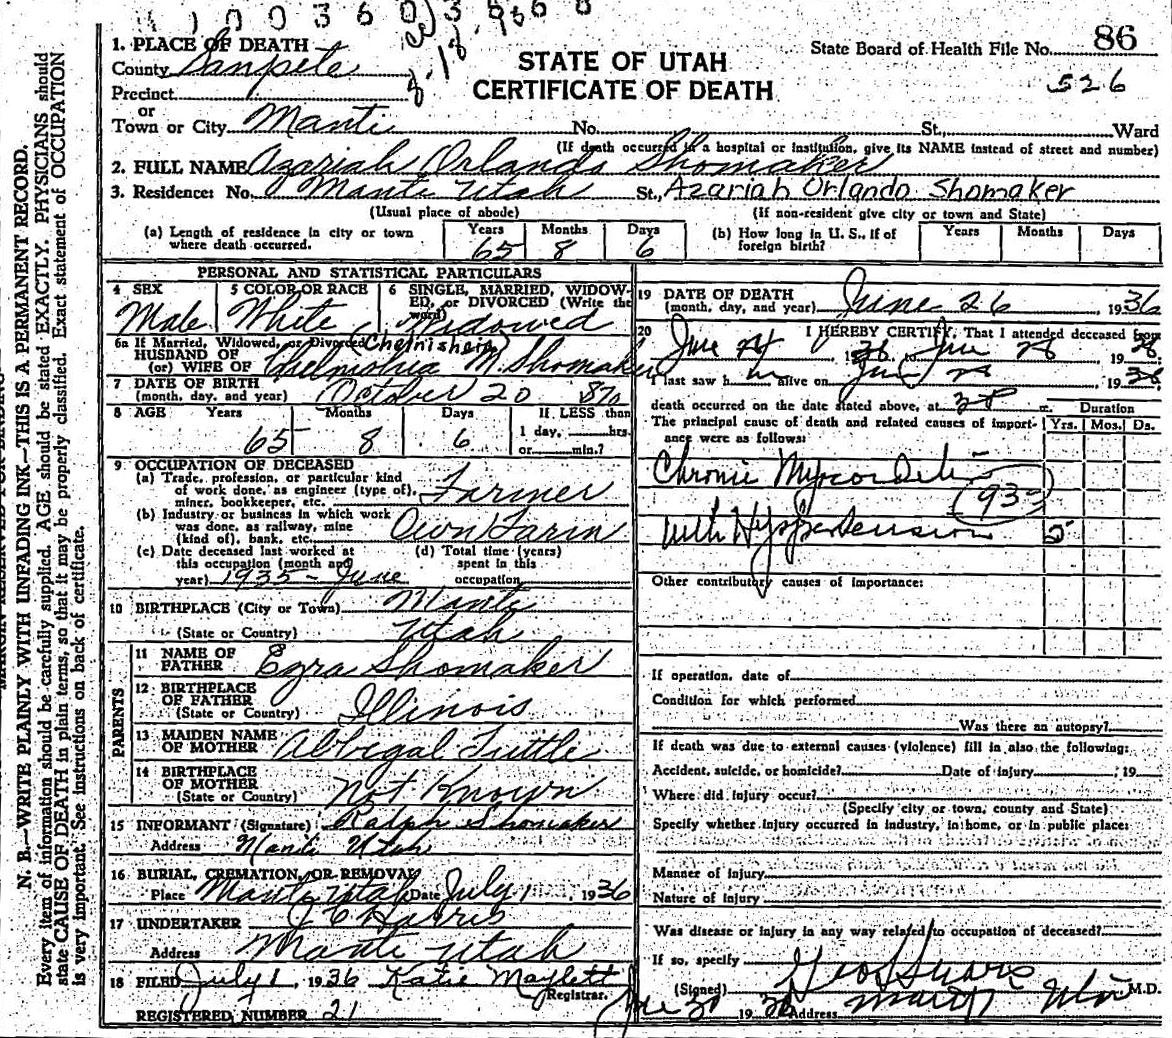 1003603
86
State Board of Health File No.
526
STATE OF UTAH
CERTIFICATE OF DEATH
1. PLACE OF DEATH
County Sanpete
Precinct
or
Town or City Manti No. St., Ward
(If death occurred in a hospital or institution, give its NAME instead of street and number)
2. FULL NAME Azariah Orlando Shomaker
3. Residence: No. Manti Utah St., Azariah Orlando Shomaker
(Usual place of abode) (If non-resident give city or town and State)
(a) Length of residence in city or town where death occurred. Years 65 Months 8 Days 6
(b) How long in U. S., if of foreign birth? Years Months Days
PERSONAL AND STATISTICAL PARTICULARS
4 SEX Male
5 COLOR OR RACE White
6 SINGLE, MARRIED, WIDOWED, or DIVORCED (Write the word) Widowed
6a If Married, Widowed, or Divorced
HUSBAND OF
(or) WIFE OF M. Shomaker
7 DATE OF BIRTH
(month, day, and year) October 20 1870
8 AGE Years 65 Months 8 Days 6 If LESS than 1 day, hrs. or min.?
9 OCCUPATION OF DECEASED
(a) Trade, profession, or particular kind of work done, as engineer (type of), miner, bookkeeper, etc. Farmer
(b) Industry or business in which work was done, as railway, mine (kind of), bank, etc. Own Farm
(c) Date deceased last worked at this occupation (month and year) 1935 - June
(d) Total time (years) spent in this occupation
10 BIRTHPLACE (City or Town) Manti
(State or Country) Utah
PARENTS
11 NAME OF FATHER Ezra Shomaker
12 BIRTHPLACE OF FATHER
(State or Country) Illinois
13 MAIDEN NAME OF MOTHER Abbigal Tuttle
14 BIRTHPLACE OF MOTHER
(State or Country) Not Known
15 INFORMANT (Signature) Ralph Shomaker
Address Manti Utah
16 BURIAL, CREMATION, OR REMOVAL
Place Manti Utah Date July 1 1936
17 UNDERTAKER J C Harris
Address Manti Utah
18 FILED July 1, 1936 Katie Maylett
Registrar.
REGISTERED NUMBER 21
19 DATE OF DEATH
(month, day, and year) June 26, 1936
20 I HEREBY CERTIFY, That I attended deceased from
June 1936 to June 19
I last saw h alive on June 19
death occurred on the date stated above, at
The principal cause of death and related causes of importance were as follows:
Duration
Yrs. Mos. Ds.
Chronic Myocarditis
93
with Hypertension 5
Other contributory causes of importance:
If operation, date of
Condition for which performed
Was there an autopsy?
If death was due to external causes (violence) fill in also the following:
Accident, suicide, or homicide? Date of injury ; 19
Where did injury occur?
(Specify city or town, county and State)
Specify whether injury occurred in industry, in home, or in public place:
Manner of injury
Nature of injury
Was disease or injury in any way related to occupation of deceased?
If so, specify
(Signed) M.D.
June 30 1936 Address Manti Utah
N. B.—WRITE PLAINLY WITH UNFADING INK—THIS IS A PERMANENT RECORD.
Every item of information should be carefully supplied. AGE should be stated EXACTLY. PHYSICIANS should
state CAUSE OF DEATH in plain terms, so that it may be properly classified. Exact statement of OCCUPATION
is very important. See instructions on back of certificate.